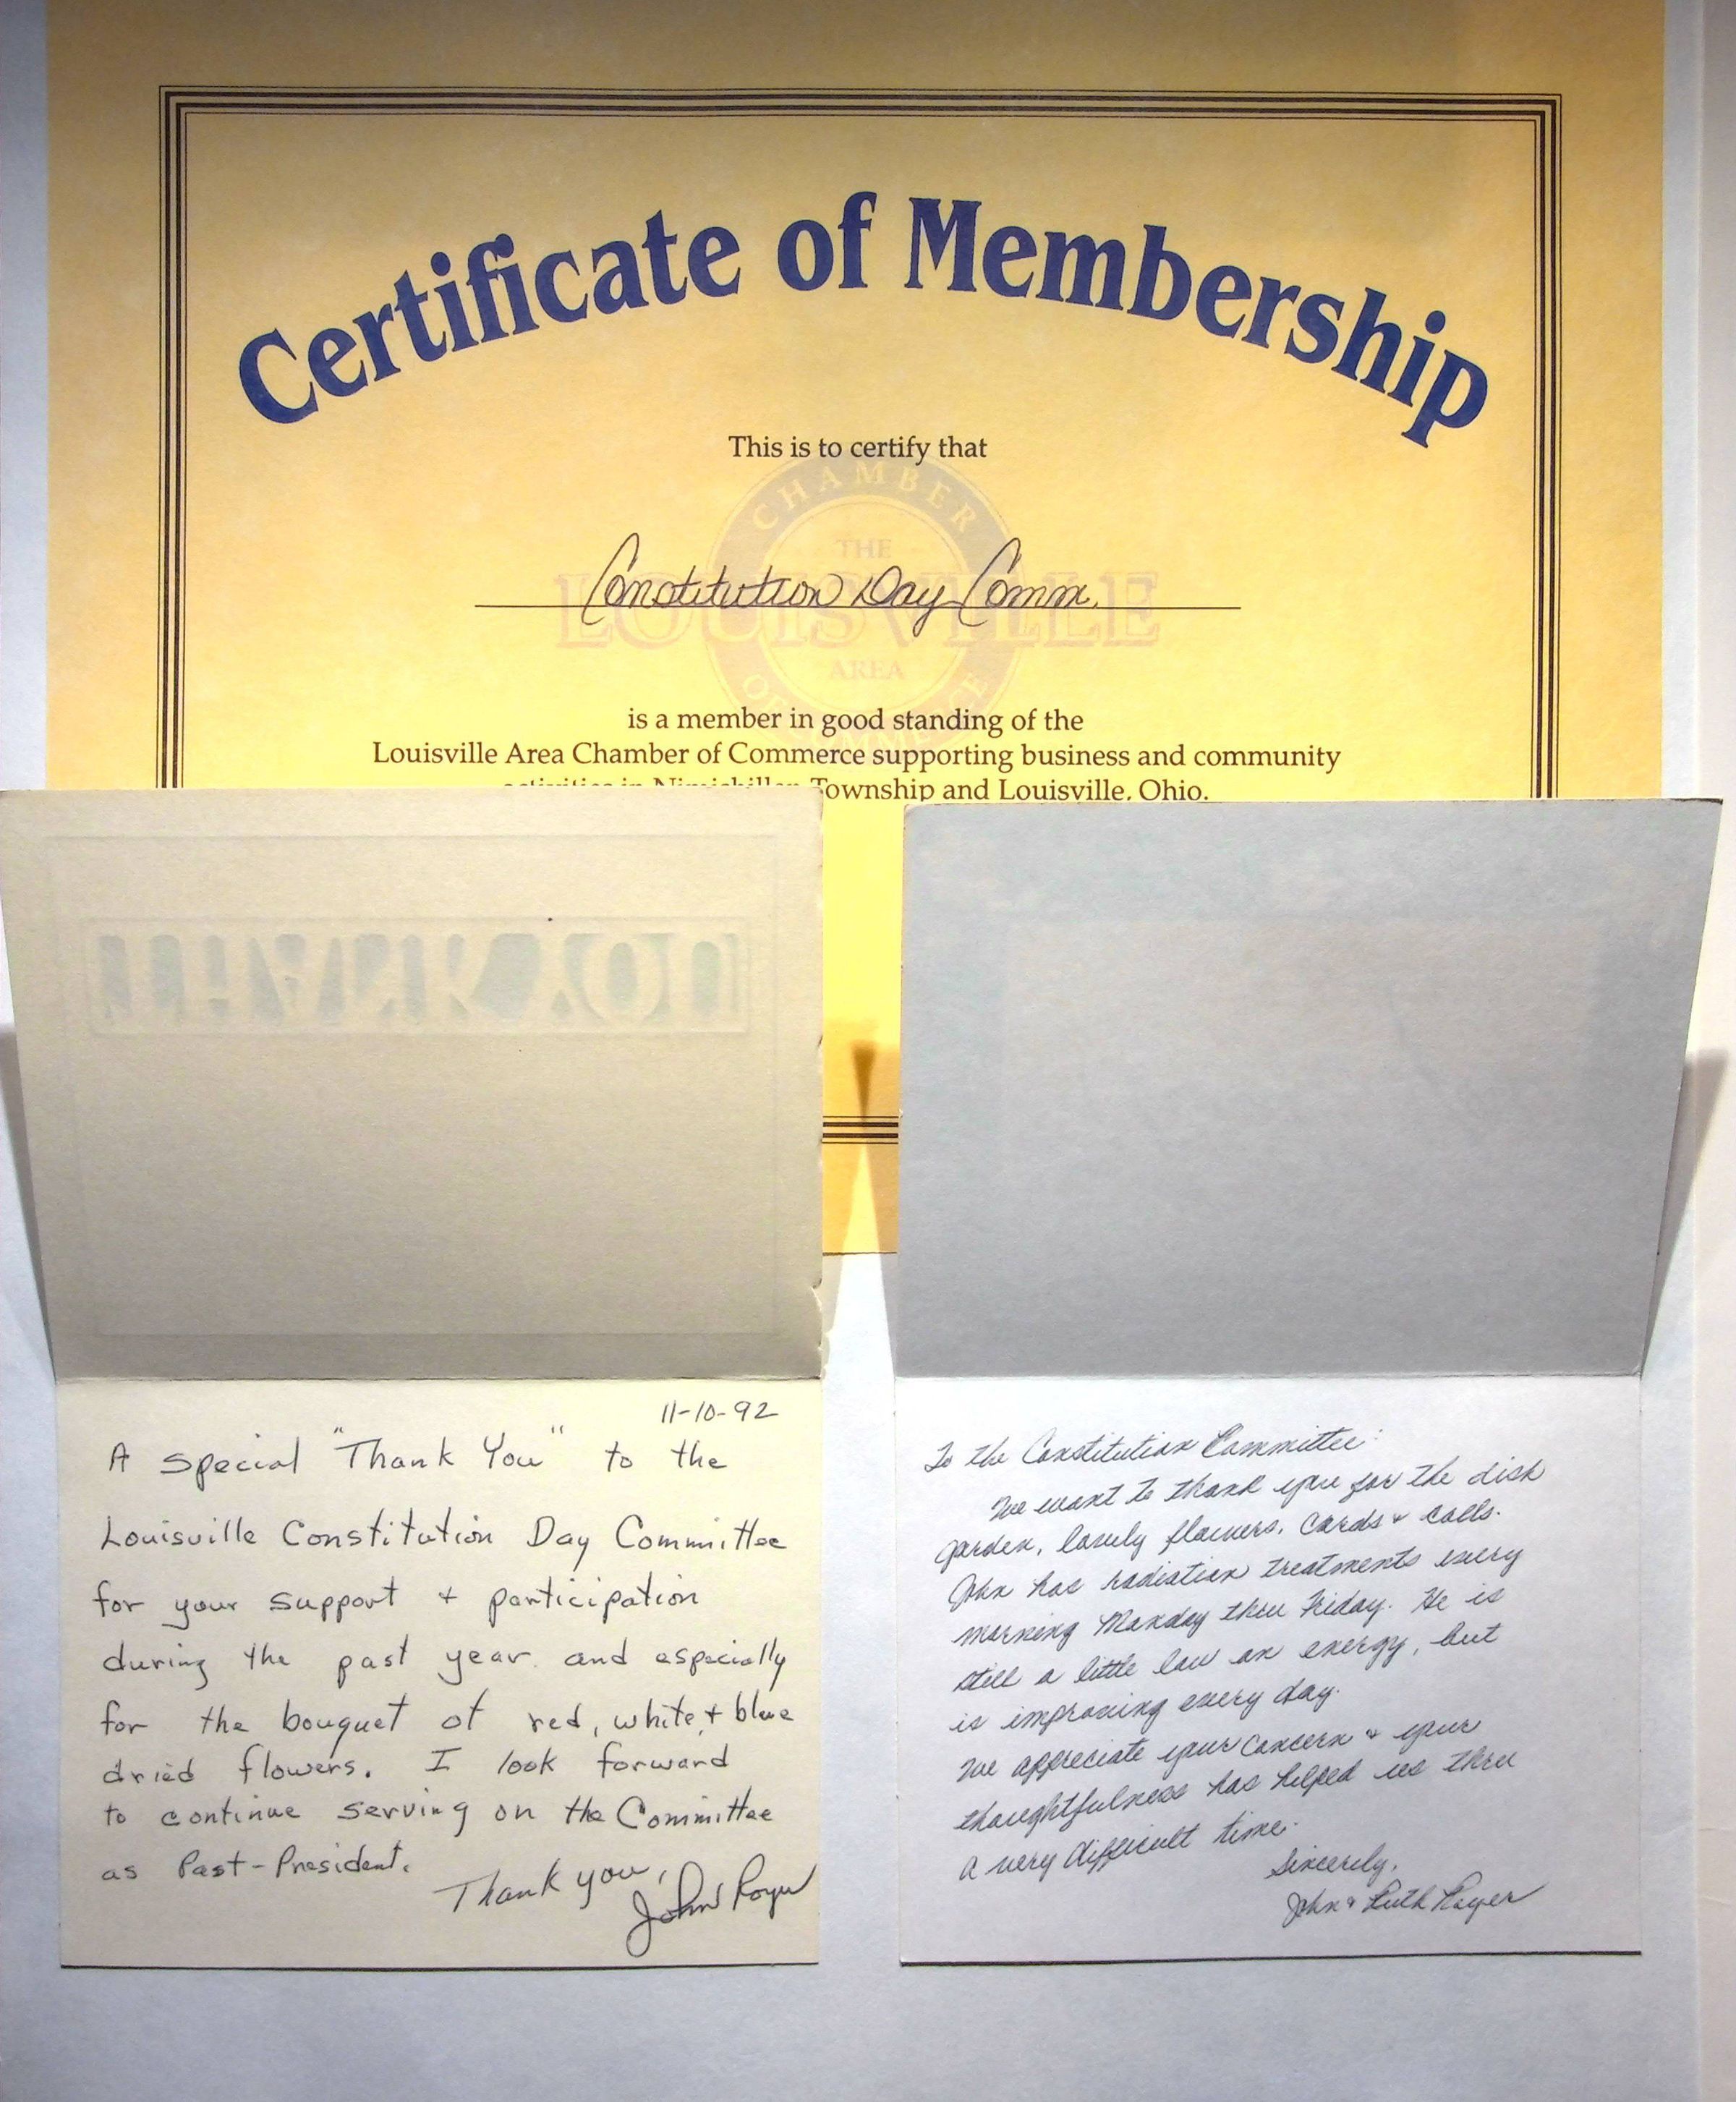 Certificate of Membership
This is to certify that
CHAMBER
THE
Constitution Day Comm.
LOUISVILLE
AREA
is a member in good standing of the
Louisville Area Chamber of Commerce supporting business and community
activities in Nimishillen Township and Louisville, Ohio.
THANK YOU
11-10-92
A special "Thank You" to the
Louisville Constitution Day Committee
for your support + participation
during the past year and especially
for the bouquet of red, white, + blue
dried flowers. I look forward
to continue serving on the Committee
as Past-President.
Thank you,
John Royer
To the Constitution Committee:
We want to thank you for the dish
garden, lovely flowers, cards + calls.
John has radiation treatments every
morning Monday thru Friday. He is
still a little low on energy, but
is improving every day.
We appreciate your concern + your
thoughtfulness has helped us thru
a very difficult time.
Sincerely,
John + Ruth Royer